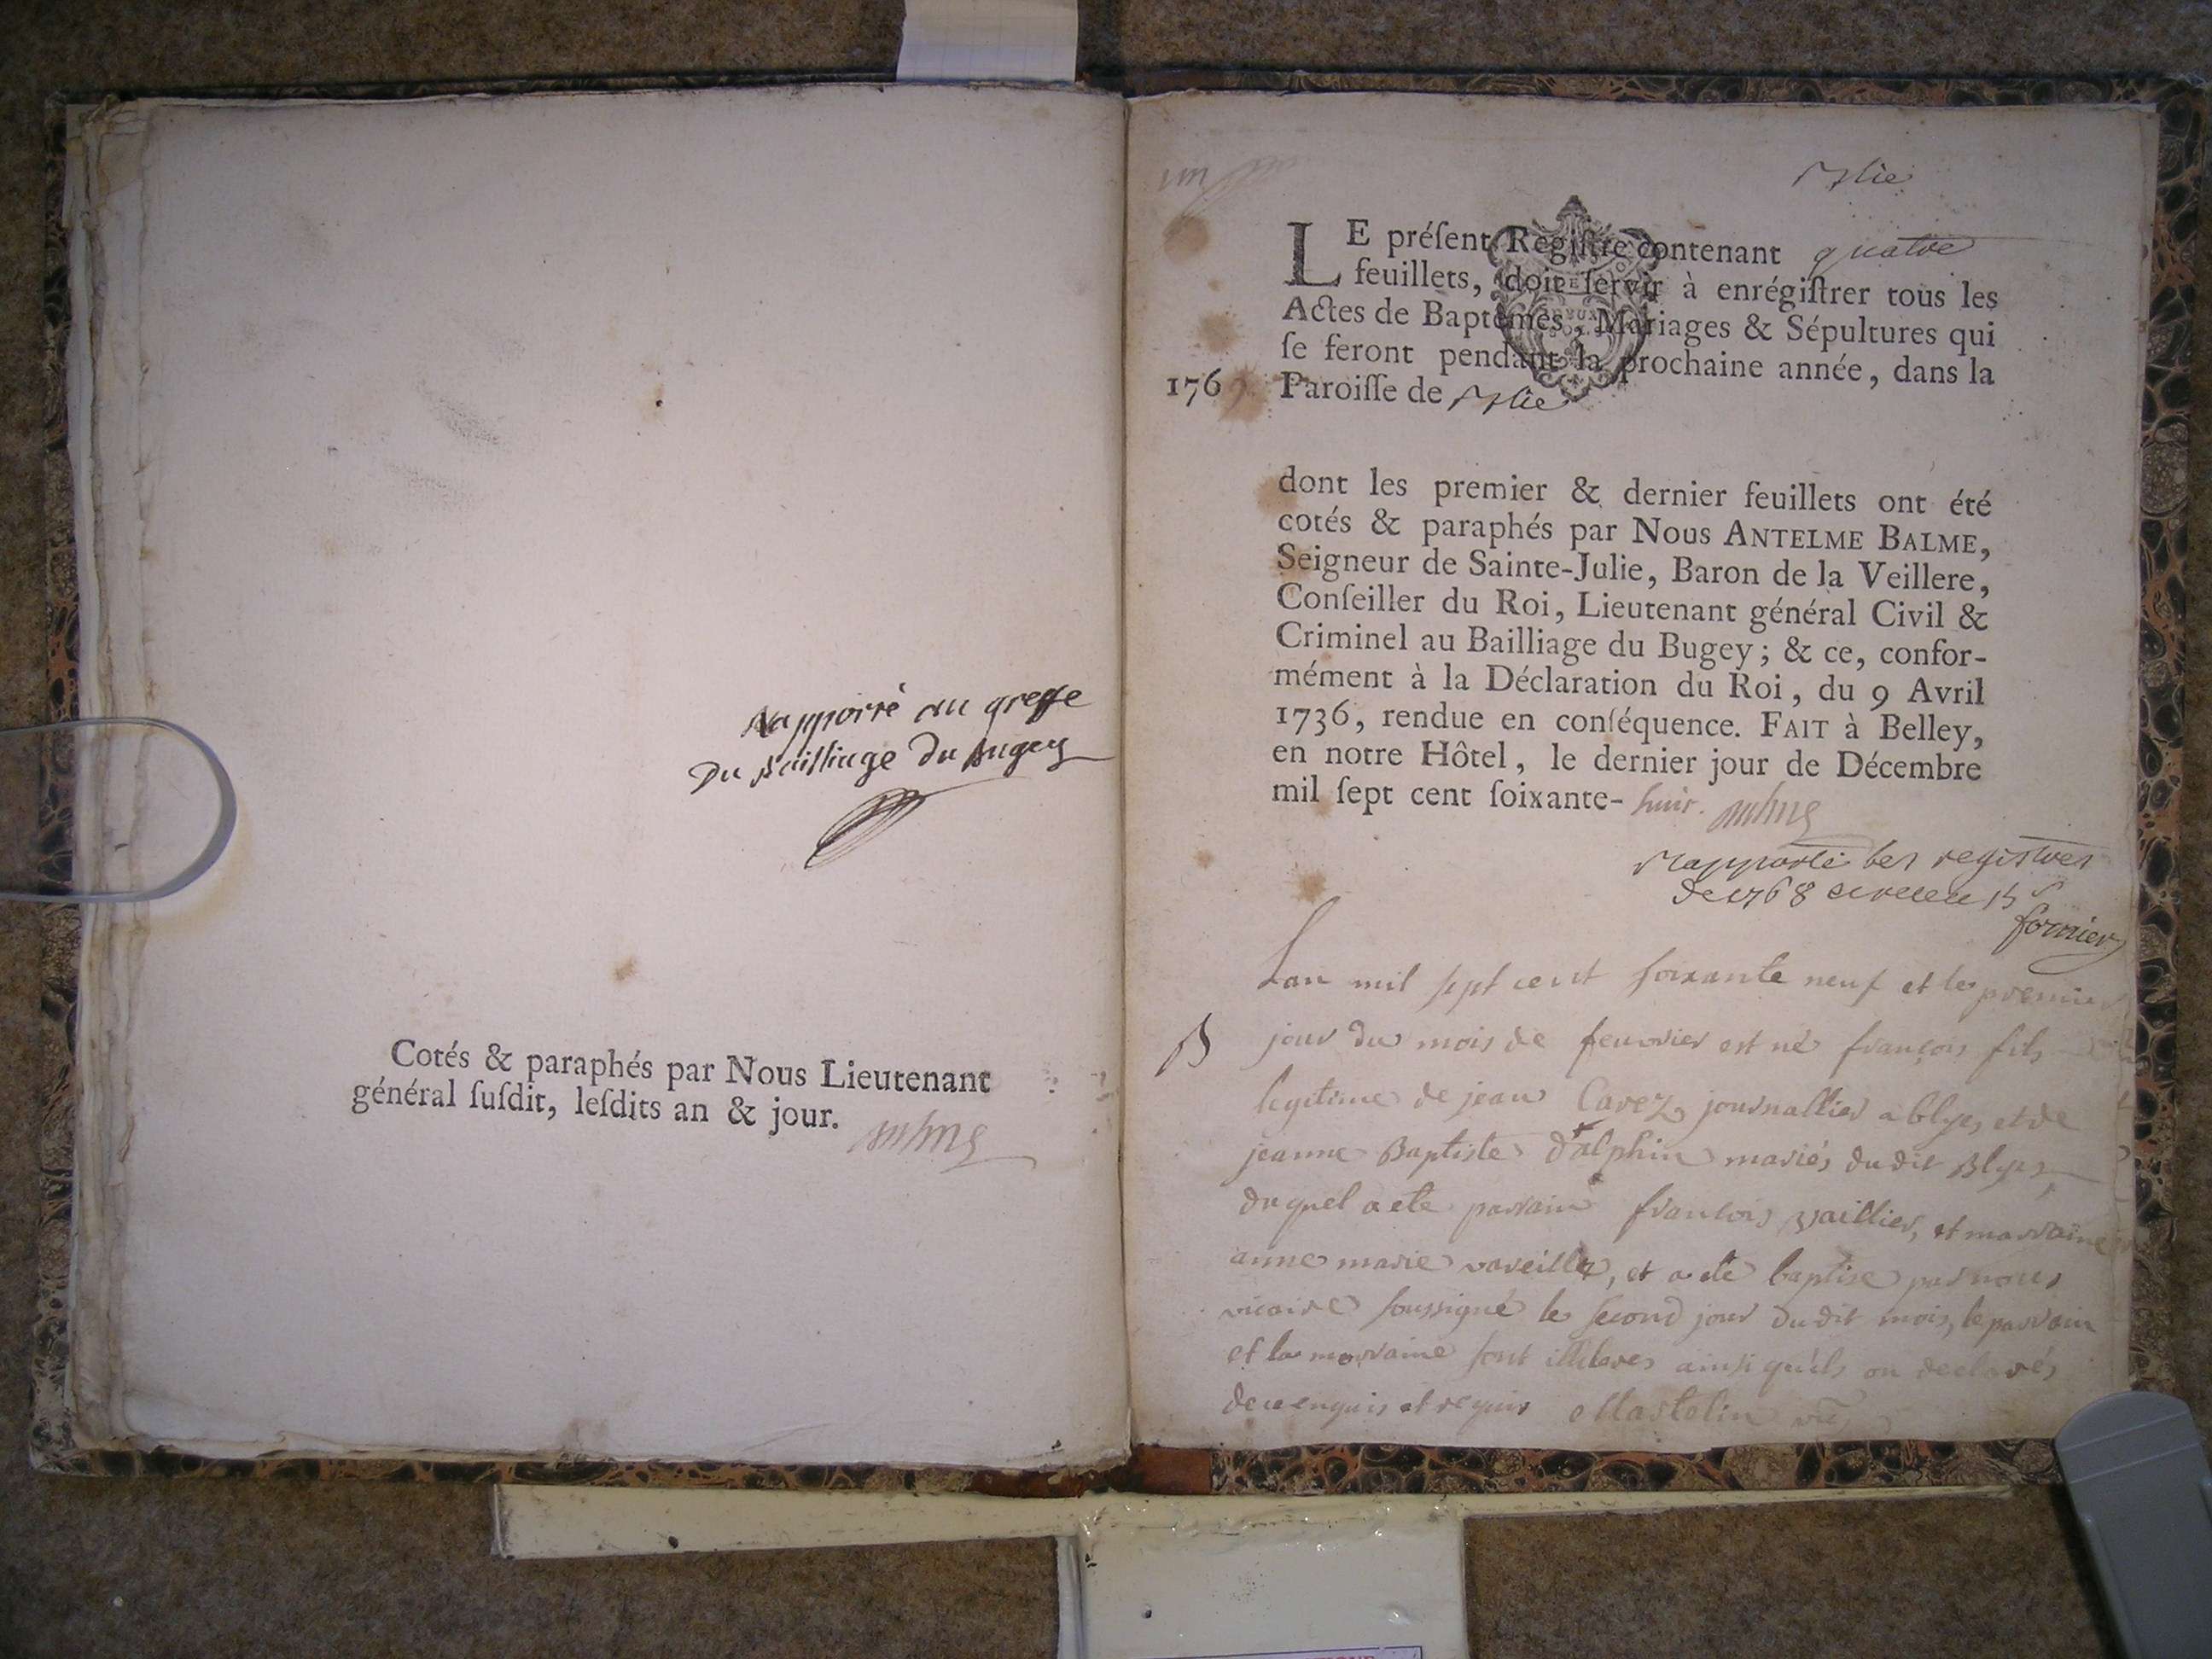 Rapporté au greffe
Du Bailliage du Bugey
Cotés & paraphés par Nous Lieutenant
général ſuſdit, leſdits an & jour.
Balme
un
Blie
LE préſent Regiſtre contenant quatre
feuillets, doit ſervir à enrégiſtrer tous les
Actes de Baptêmes, Mariages & Sépultures qui
ſe feront pendant la prochaine année, dans la
1769 Paroiſſe de Blie
dont les premier & dernier feuillets ont été
cotés & paraphés par Nous ANTELME BALME,
Seigneur de Sainte-Julie, Baron de la Veillere,
Conſeiller du Roi, Lieutenant général Civil &
Criminel au Bailliage du Bugey; & ce, confor-
mément à la Déclaration du Roi, du 9 Avril
1736, rendue en conſéquence. FAIT à Belley,
en notre Hôtel, le dernier jour de Décembre
mil ſept cent ſoixante-huit. Balme
Rapporté les registres
de 1768 et receu 15 s
fornier
Lan mil sept cent soixante neuf et le premier
B jour du mois de feuvrier est né françois fils
legitime de jean Carez journallier a blyes, et de
jeanne Baptiste d'alphin mariés dudit Blyes,
duquel a ete parrain françois vaillier, et marraine
anne marie vareille, et a ete baptise par nous
vicaire soussigné le second jour dudit mois, le parrain
et la marraine sont illiteres ainsi qu'ils on declarés
de ce enquis et requis Mastolin vic